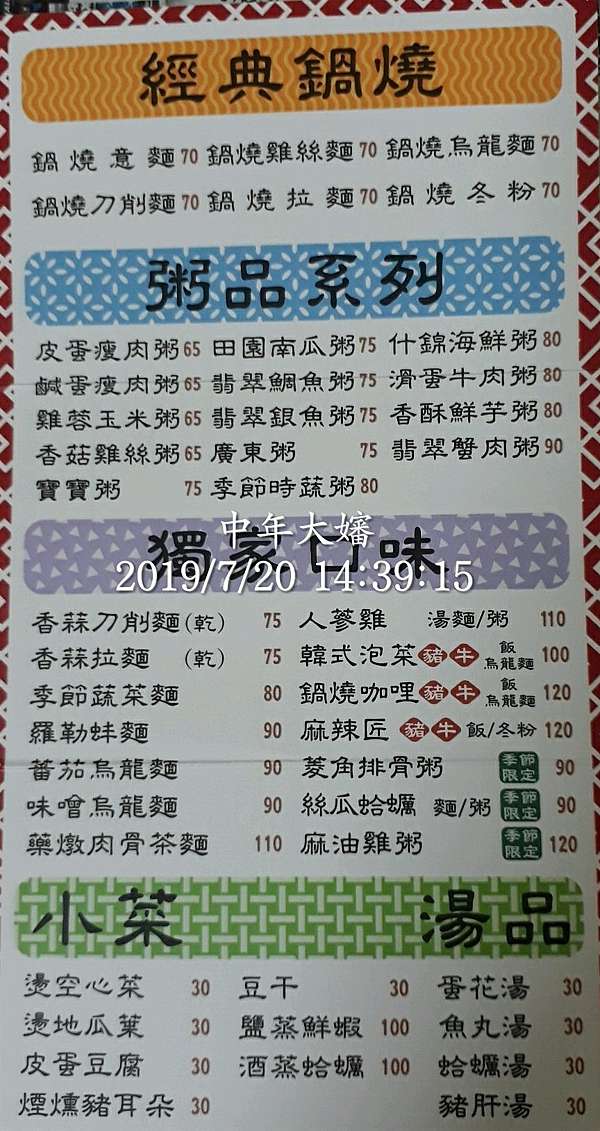 經典鍋燒
鍋燒意麵 70 鍋燒雞絲麵 70 鍋燒烏龍麵 70
鍋燒刀削麵 70 鍋燒拉麵 70 鍋燒冬粉 70
粥品系列
皮蛋瘦肉粥 65 田園南瓜粥 75 什錦海鮮粥 80
鹹蛋瘦肉粥 65 翡翠鯛魚粥 75 滑蛋牛肉粥 80
雞蓉玉米粥 65 翡翠銀魚粥 75 香酥鮮芋粥 80
香菇雞絲粥 65 廣東粥 75 翡翠蟹肉粥 90
寶寶粥 75 季節時蔬粥 80
獨家口味
中年大嬸
2019/7/20 14:39:15
香蒜刀削麵(乾) 75 人蔘雞 湯麵/粥 110
香蒜拉麵 (乾) 75 韓式泡菜 豬 牛 飯 烏龍麵 100
季節蔬菜麵 80 鍋燒咖哩 豬 牛 飯 烏龍麵 120
羅勒蚌麵 90 麻辣匠 豬 牛 飯/冬粉 120
蕃茄烏龍麵 90 菱角排骨粥 季節限定 90
味噌烏龍麵 90 絲瓜蛤蠣 麵/粥 季節限定 90
藥燉肉骨茶麵 110 麻油雞粥 季節限定 120
小菜 湯品
燙空心菜 30 豆干 30 蛋花湯 30
燙地瓜葉 30 鹽蒸鮮蝦 100 魚丸湯 30
皮蛋豆腐 30 酒蒸蛤蠣 100 蛤蠣湯 30
煙燻豬耳朵 30 豬肝湯 30